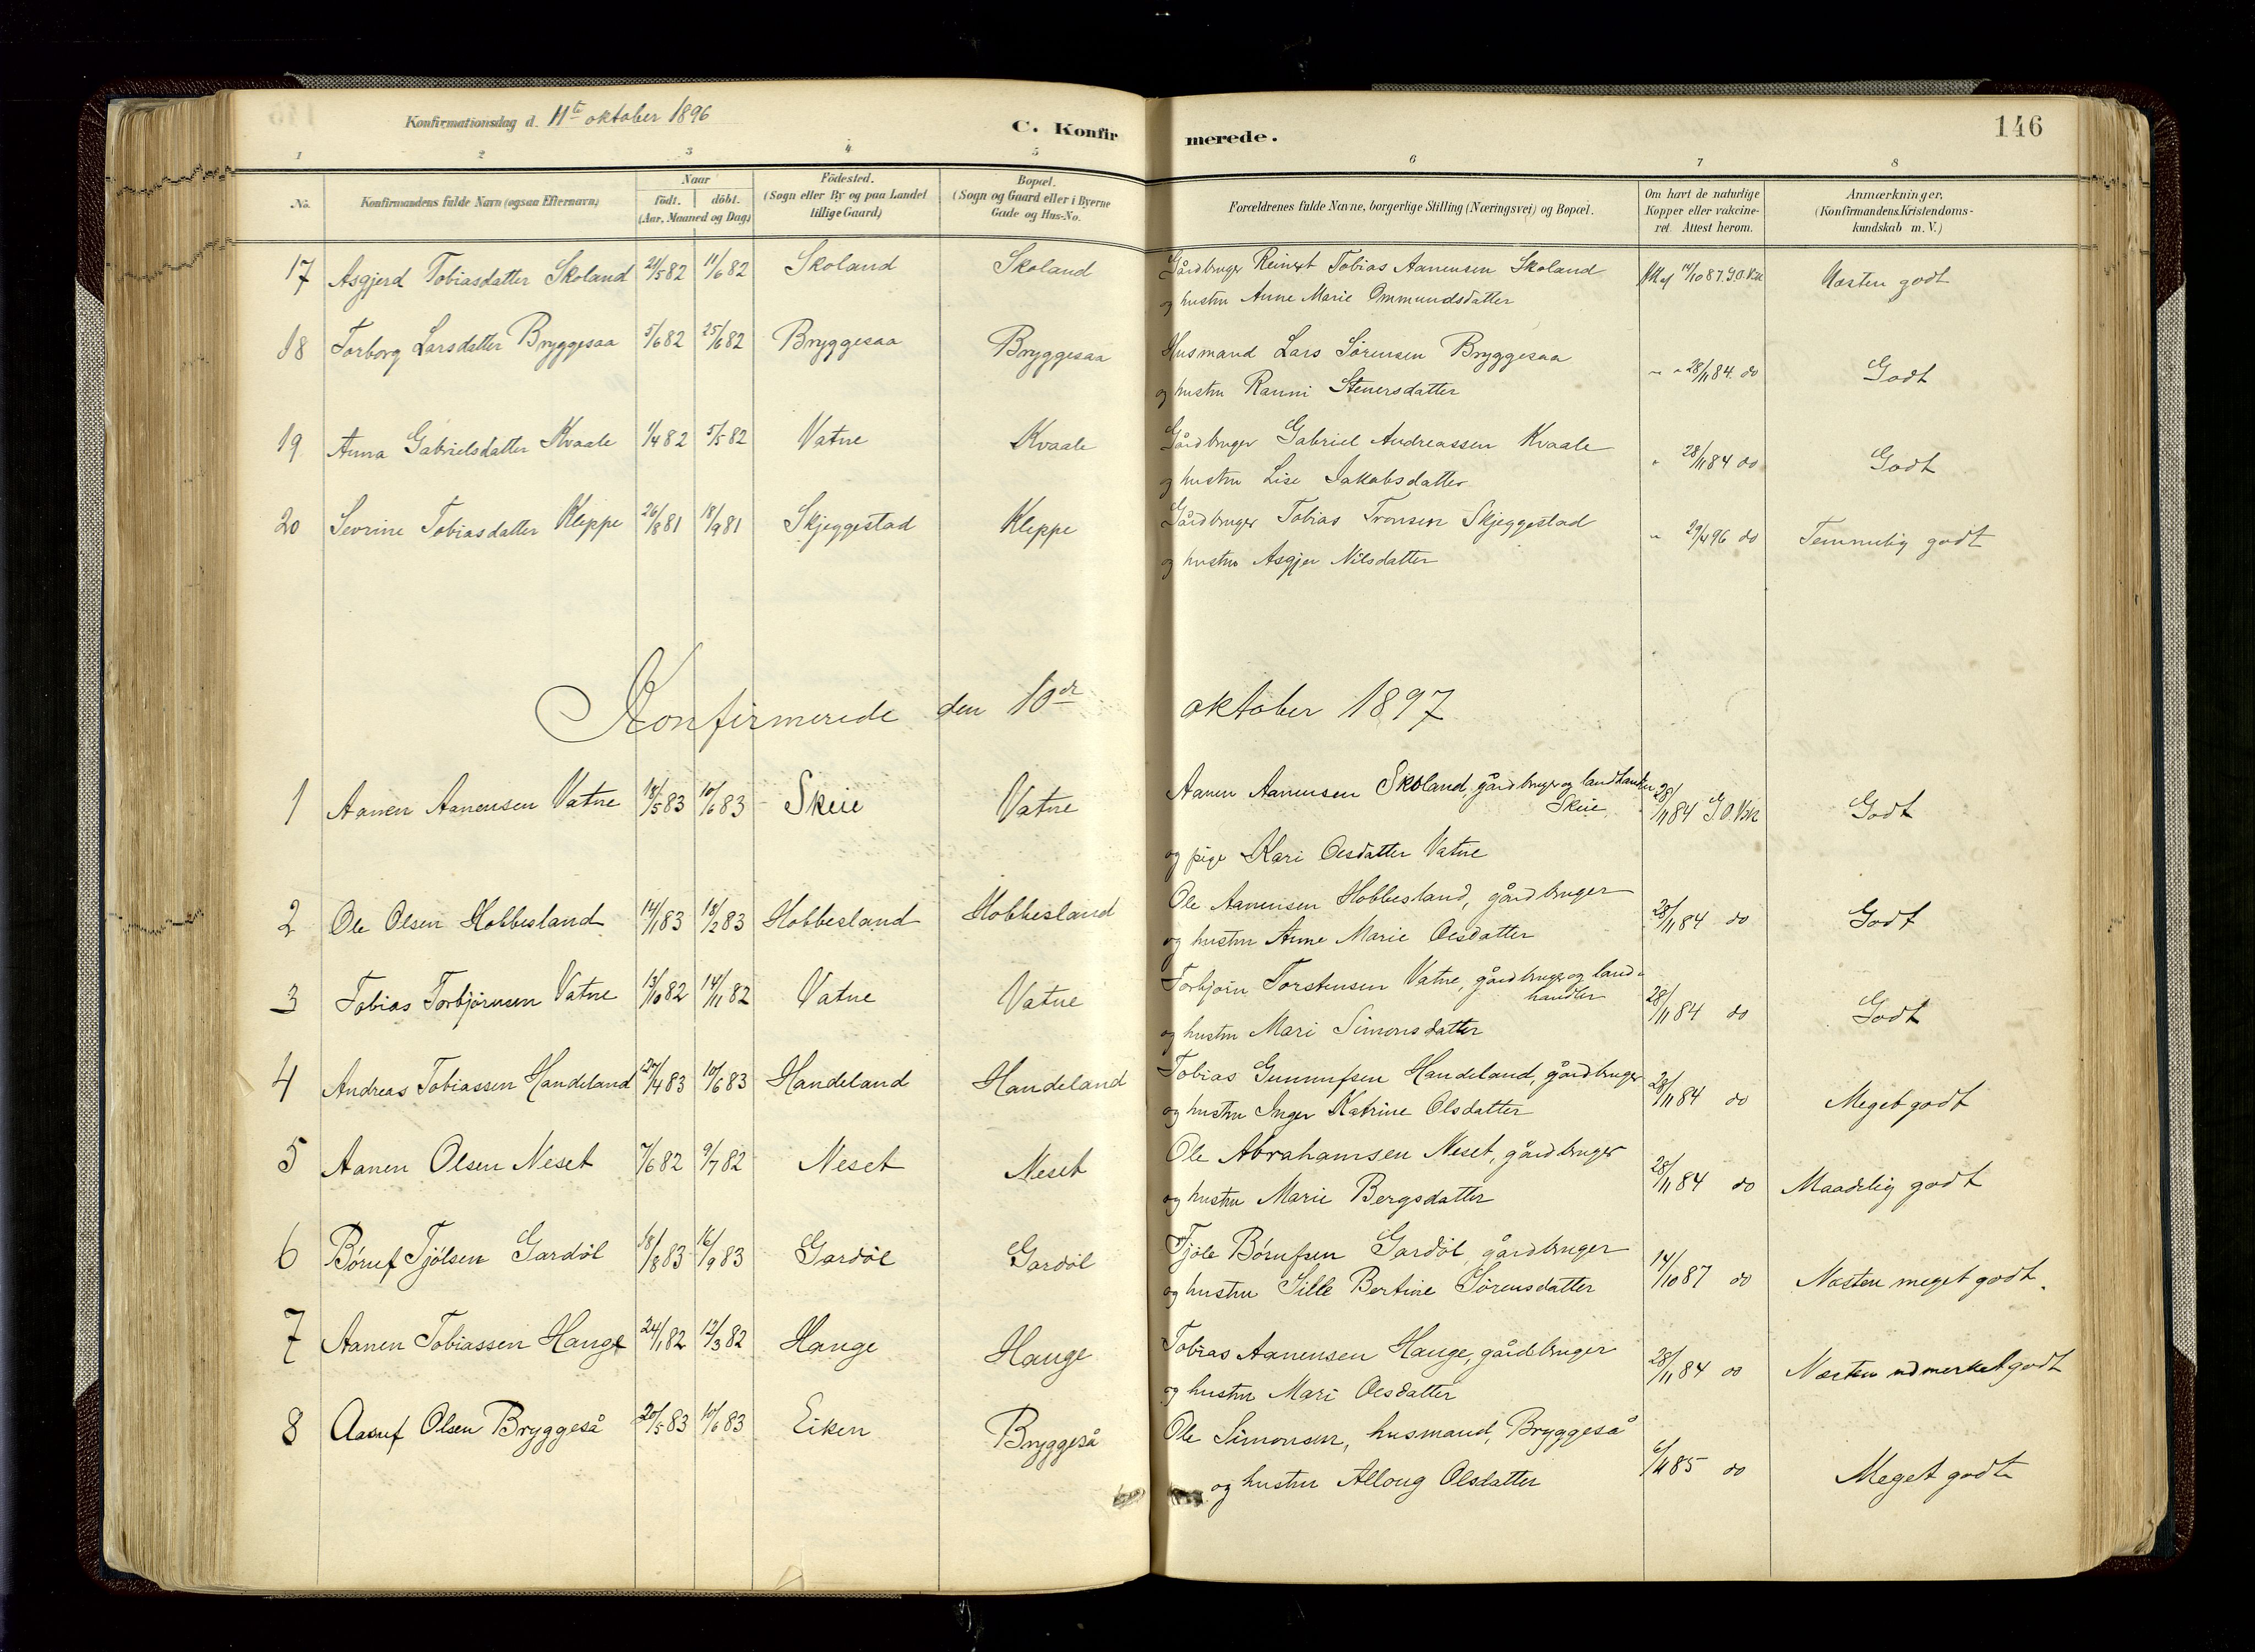 Konfirmationsdag d. 11te oktober 1896
C. Konfirmerede.
146
1 2 3 4 5 6 7 8
No. Konfirmandens fulde Navn (ogsaa Efternavn) Naar födt. döbt. (Aar, Maaned og Dag) Födested. (Sogn eller By og paa Landet tillige Gaard) Bopæl. (Sogn og Gaard eller i Byerne Gade og Hus-No. Forældrenes fulde Navne, borgerlige Stilling (Næringsvei) og Bopæl. Om havt de naturlige Kopper eller vakcineret. Attest herom. Anmærkninger, (Konfirmandens Kristendomskundskab m. V.)
17 Asgjerd Tobiasdatter Skoland 21/5 82 11/6 82 Skoland Skoland Gårdbruger Reinert Tobias Aanensen Skoland 14/10 87. Næsten godt
og hustru Anne Marie Ommundsdatter
18 Torborg Larsdatter Bryggesaa 5/6 82 25/6 82 Bryggesaa Bryggesaa Husmand Lars Sørensen Bryggesaa " " 28/11 84. do Godt
og hustru Ranni Stenersdatter
19 Anna Gabrielsdatter Kvaale 1/4 82 5/5 82 Vatne Kvaale Gårdbruger Gabriel Andreassen Kvaale " 28/11 84 do Godt
og hustru Lise Jakobsdatter
20 Sevrine Tobiasdatter Kleppe 26/8 81 18/9 81 Skjeggestad Kleppe Gårdbruger Tobias Tronsen Skjeggestad " 29/4 96 do Temmelig godt
og hustru Asgjer Nilsdatter
Konfirmerede den 10de oktober 1897
1 Aanen Aanensen Vatne 18/5 83 10/6 83 Skeie Vatne Aanen Aanensen Skoland, gårdbruger og landhandler 28/11 84 Godt
Skeie
og pige Kari Olsdatter Vatne
2 Ole Olsen Hobbesland 14/1 83 18/2 83 Hobbesland Hobbesland Ole Aanensen Hobbesland, gårdbruger 28/11 84 do Godt
og hustru Anne Marie Olsdatter
3 Tobias Torbjörnsen Vatne 13/10 82 14/11 82 Vatne Vatne Torbjörn Torstensen Vatne, gårdbruger og land-
handler 28/11 84 do Godt
og hustru Mari Simonsdatter
4 Andreas Tobiassen Handeland 27/4 83 10/6 83 Handeland Handeland Tobias Gunnufsen Handeland, gårdbruger 28/11 84 do Meget godt
og hustru Inger Katrine Olsdatter
5 Aanen Olsen Neset 7/6 82 9/7 82 Neset Neset Ole Abrahamsen Neset, gårdbruger 28/11 84 do Maadelig godt
og hustru Marie Bergsdatter
6 Böruf Tjölsen Gardöl 18/8 83 16/9 83 Gardöl Gardöl Tjöle Börufsen Gardöl, gårdbruger 14/10 87 do Næsten meget godt.
og hustru Sille Bertine Sörensdatter
7 Aanen Tobiassen Hauge 24/1 82 12/3 82 Hauge Hauge Tobias Aanensen Hauge, gårdbruger 28/11 84 do Næsten udmerket godt
og hustru Mari Olsdatter
8 Aasuf Olsen Bryggeså 20/5 83 10/6 83 Eiken Bryggeså Ole Simonsen, husmand, Bryggeså 85 do Meget godt
og hustru Alloug Olsdatter